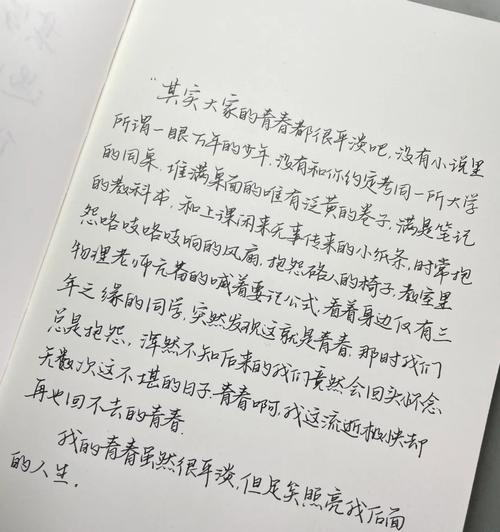 “其实大家的青春都很平淡吧,没有小说里
所谓一眼万年的少年,没有和你约定考同一所大学
的同桌.堆满桌面的唯有泛黄的卷子,满是笔记
的教科书,和上课闲来无事传来的小纸条,时常抱
怨咯吱咯吱响的风扇,抱怨硌人的椅子,教室里
物理老师亢奋的喊着要记公式,看着身边仅有三
年之缘的同学,突然发现这就是青春.那时我们
总是抱怨,浑然不知后来的我们竟然会回头怀念
无数次这不堪的日子.青春啊,我这流逝极快却
再也回不去的青春.
我的青春虽然很平淡,但足矣照亮我后面
的人生.